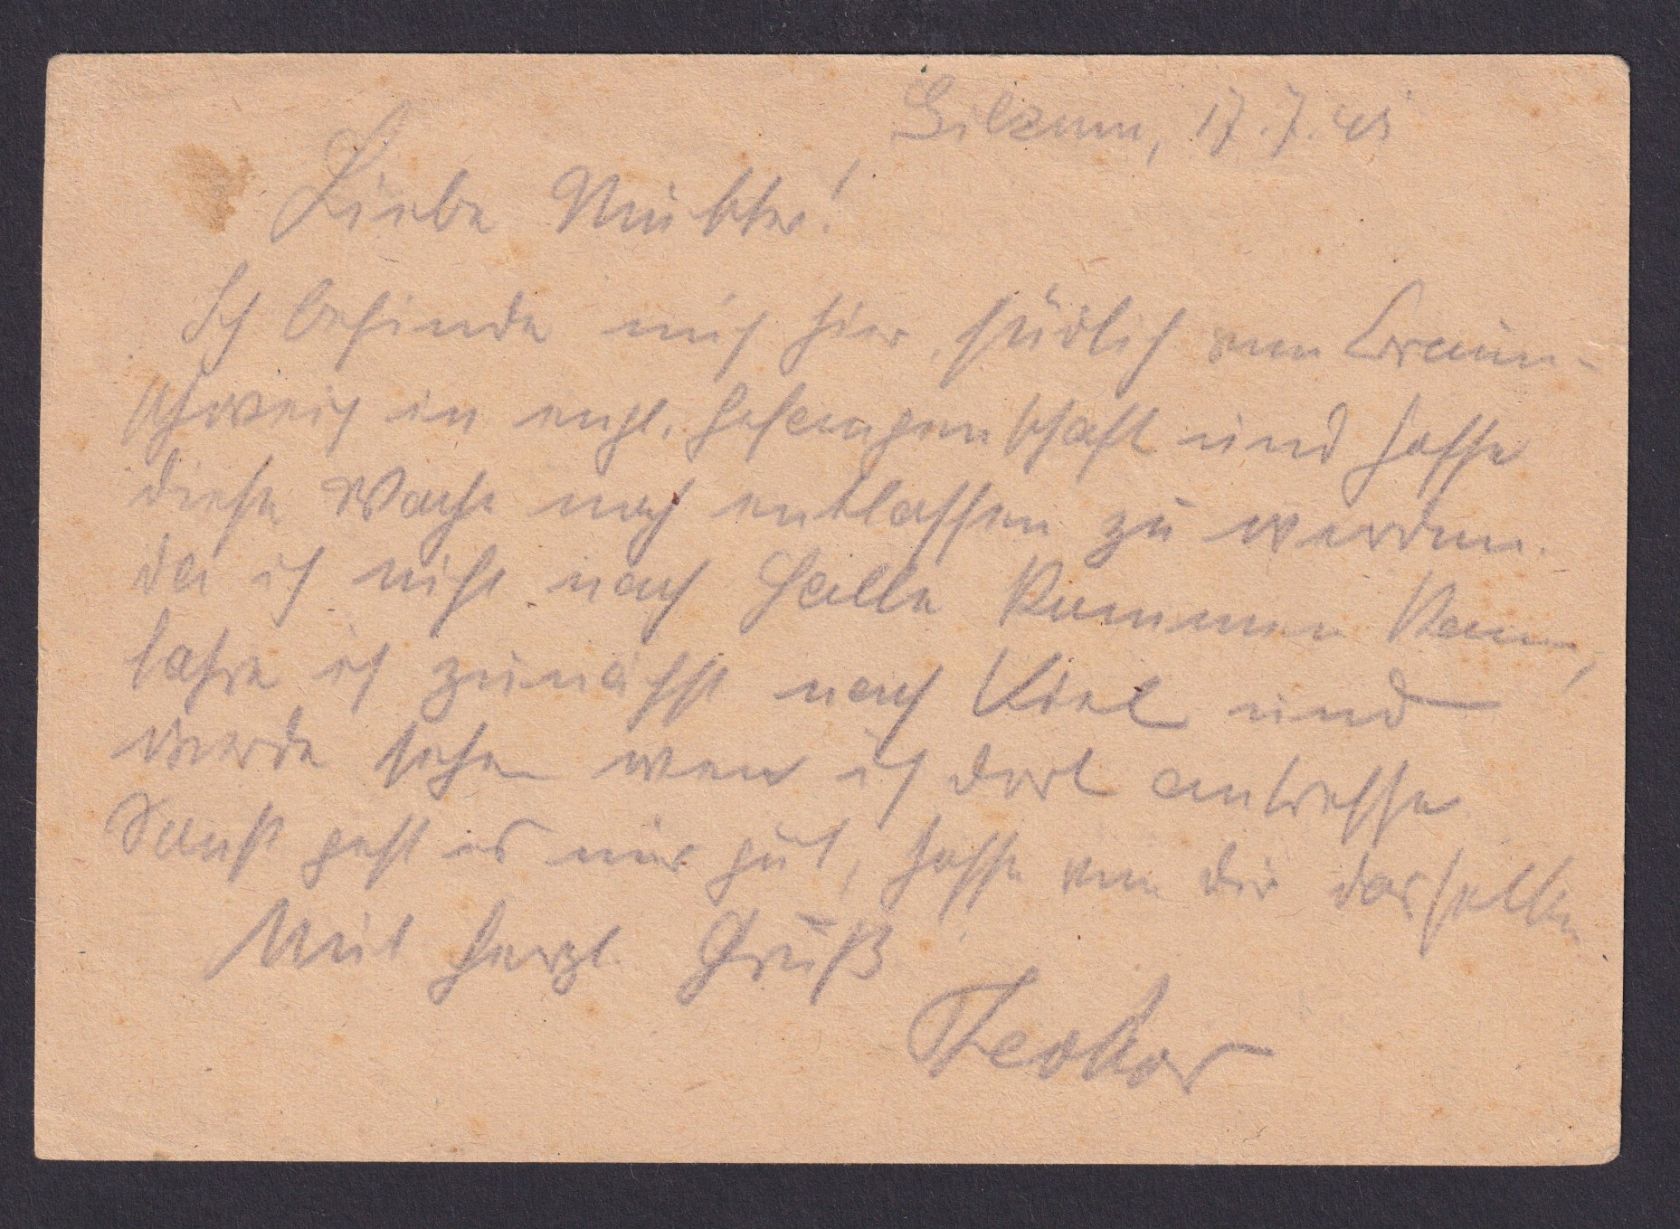 Gilzum, 17.7.45
Liebe Mutter!
Ich befinde mich hier, südlich von Braun-
schweig in engl. Gefangenschaft und hoffe
diese Woche noch entlassen zu werden.
da ich nicht nach Halle kommen kann,
fahre ich zunächst nach Kiel und
werde sehen wen ich dort antreffe
Sonst geht es mir gut, hoffe von dir dasselbe
Mit herzl. Gruß
Theodor